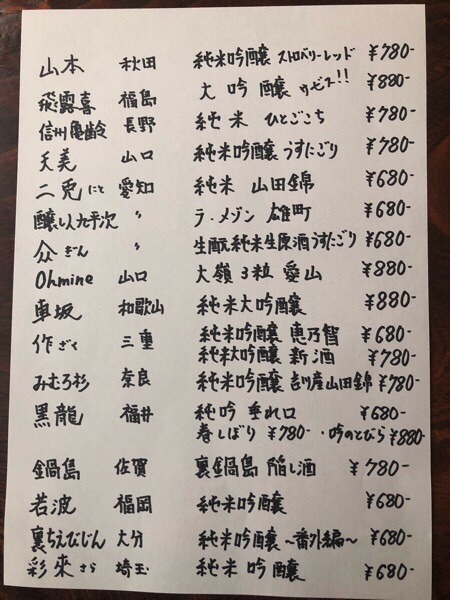 山本 秋田 純米吟醸 ストロベリーレッド ¥780-
飛露喜 福島 大吟醸 サービス!! ¥880-
信州亀齢 長野 純米 ひとごこち ¥780-
天美 山口 純米吟醸うすにごり ¥780-
二兎にと 愛知 純米 山田錦 ¥680-
醸し人九平次 〃 ラ・メゾン 雄町 ¥680-
ぎん 〃 生酛純米生原酒うすにごり ¥680-
Ohmine 山口 大嶺3粒 愛山 ¥880-
車坂 和歌山 純米大吟醸 ¥880-
作ざく 三重 純米吟醸 恵乃智 ¥680-
純米大吟醸 新酒 ¥780-
みむろ杉 奈良 純米吟醸 吉川産山田錦 ¥780-
黒龍 福井 純吟 垂れ口 ¥680-
春しぼり ¥780- ・吟のとびら ¥880-
鍋島 佐賀 裏鍋島 隠し酒 ¥780-
若波 福岡 純米吟醸 ¥680-
裏ちえびじん 大分 純米吟醸 ～番外編～ ¥680-
彩來 さら 埼玉 純米吟醸 ¥680-